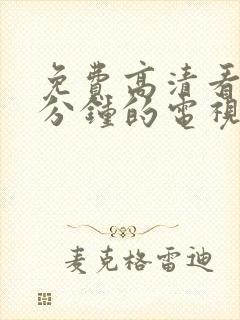 免費高清看
分鐘的電視
麦克格雷迪